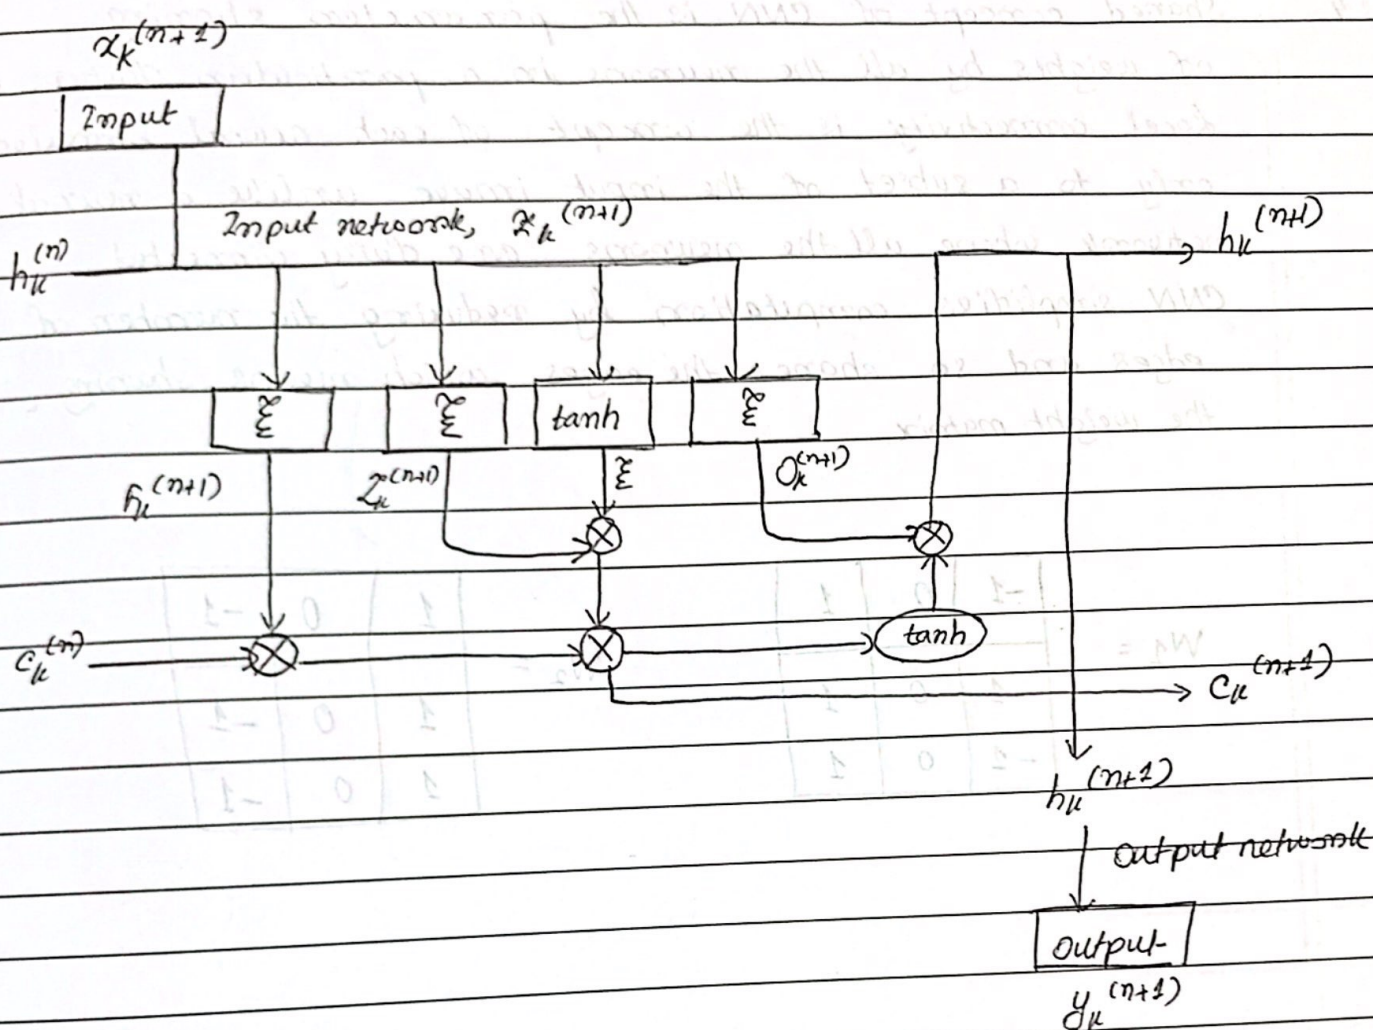 x_k^(n+1)
Input
Input network, x_k^(n+1)
h_k^(n)
h_k^(n+1)
ξ ξ tanh ξ
f_k^(n+1) i_k^(n+1) ξ O_k^(n+1)
⊗ ⊗
C_k^(n) ⊗ ⊗ tanh
C_k^(n+1)
h_k^(n+1)
output network
output
y_k^(n+1)